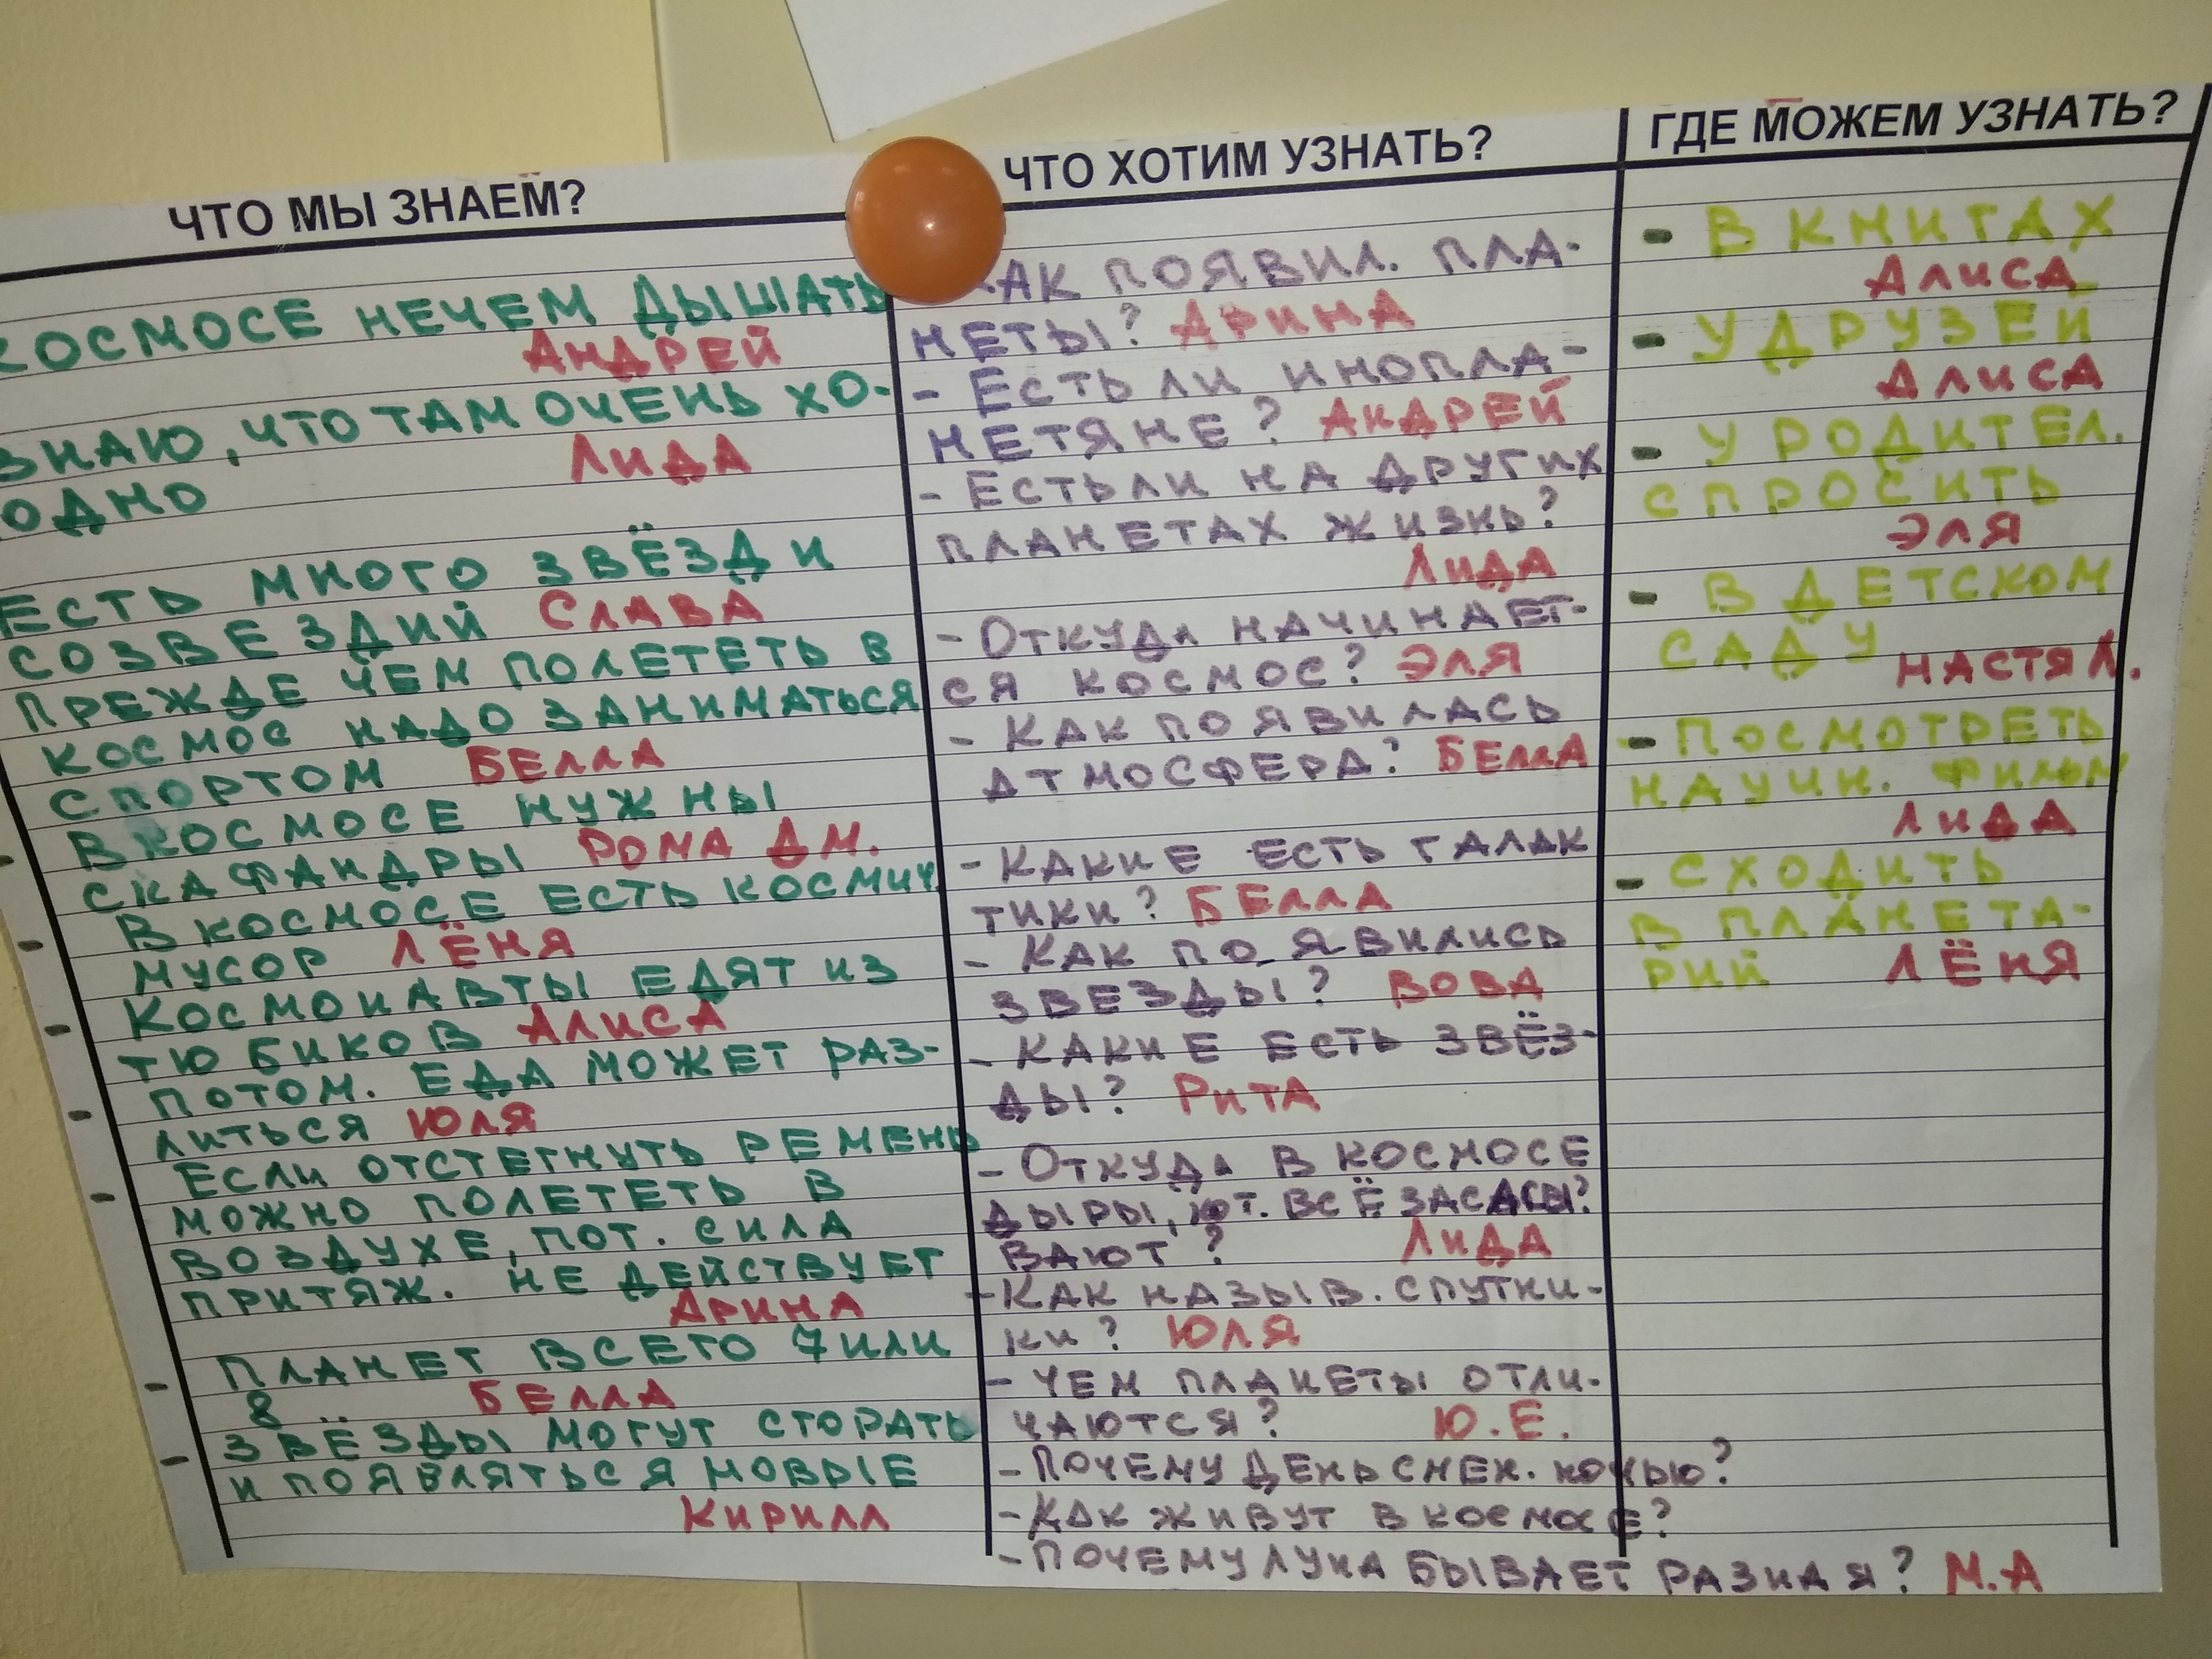 ЧТО МЫ ЗНАЕМ?
КОСМОСЕ НЕЧЕМ ДЫШАТЬ
АНДРЕЙ
ЗНАЮ, ЧТО ТАМ ОЧЕНЬ ХО-
ЛИДА
ОДНО
ЕСТЬ МНОГО ЗВЁЗД И
СОЗВЕЗДИЙ СЛАВА
ПРЕЖДЕ ЧЕМ ПОЛЕТЕТЬ В
КОСМОС НАДО ЗАНИМАТЬСЯ
СПОРТОМ БЕЛЛА
В КОСМОСЕ НУЖНЫ
СКАФАНДРЫ РОМА ДМ.
- В КОСМОСЕ ЕСТЬ КОСМИЧ.
МУСОР ЛЁНЯ
- КОСМОНАВТЫ ЕДЯТ ИЗ
ТЮБИКОВ АЛИСА
- ПОТОМ. ЕДА МОЖЕТ РАЗ-
ЛИТЬСЯ ЮЛЯ
- ЕСЛИ ОТСТЕГНУТЬ РЕМЕНЬ
МОЖНО ПОЛЕТЕТЬ В
ВОЗДУХЕ, ПОТ. СИЛА
ПРИТЯЖ. НЕ ДЕЙСТВУЕТ
АРИНА
- ПЛАНЕТ ВСЕГО 7 ИЛИ
8 БЕЛЛА
- ЗВЁЗДЫ МОГУТ СГОРАТЬ
И ПОЯВЛЯТЬСЯ НОВЫЕ
КИРИЛЛ
ЧТО ХОТИМ УЗНАТЬ?
АК ПОЯВИЛ. ПЛА-
НЕТЫ? АРИНА
- ЕСТЬ ЛИ ИНОПЛА-
НЕТЯНЕ? АНДРЕЙ
- ЕСТЬ ЛИ НА ДРУГИХ
ПЛАНЕТАХ ЖИЗНЬ?
ЛИДА
- ОТКУДА НАЧИНАЕТ-
СЯ КОСМОС? ЭЛЯ
- КАК ПОЯВИЛАСЬ
АТМОСФЕРА? БЕЛЛА
- КАКИЕ ЕСТЬ ГАЛАК
ТИКИ? БЕЛЛА
- КАК ПОЯВИЛИСЬ
ЗВЕЗДЫ? ВОВА
- КАКИЕ ЕСТЬ ЗВЁЗ-
ДЫ? РИТА
- ОТКУДА В КОСМОСЕ
ДЫРЫ, ВСЁ
ВАЮТ? ЛИДА
- КАК НАЗЫВ. СПУТНИ-
КИ? ЮЛЯ
- ЧЕМ ПЛАНЕТЫ ОТЛИ-
ЧАЮТСЯ? Ю.Е.
- ПОЧЕМУ ДЕНЬ СМЕН. НОЧЬЮ?
- КАК ЖИВУТ В КОСМОСЕ?
- ПОЧЕМУ ЛУНА БЫВАЕТ РАЗНАЯ? М.А
ГДЕ МОЖЕМ УЗНАТЬ?
- В КНИГАХ
АЛИСА
- У ДРУЗЕЙ
АЛИСА
- У РОДИТЕЛ.
СПРОСИТЬ
ЭЛЯ
- В ДЕТСКОМ
САДУ НАСТЯ Л.
- ПОСМОТРЕТЬ
НАУЧН. ФИЛЬМ
ЛИДА
- СХОДИТЬ
В ПЛАНЕТА-
РИЙ ЛЁНЯ